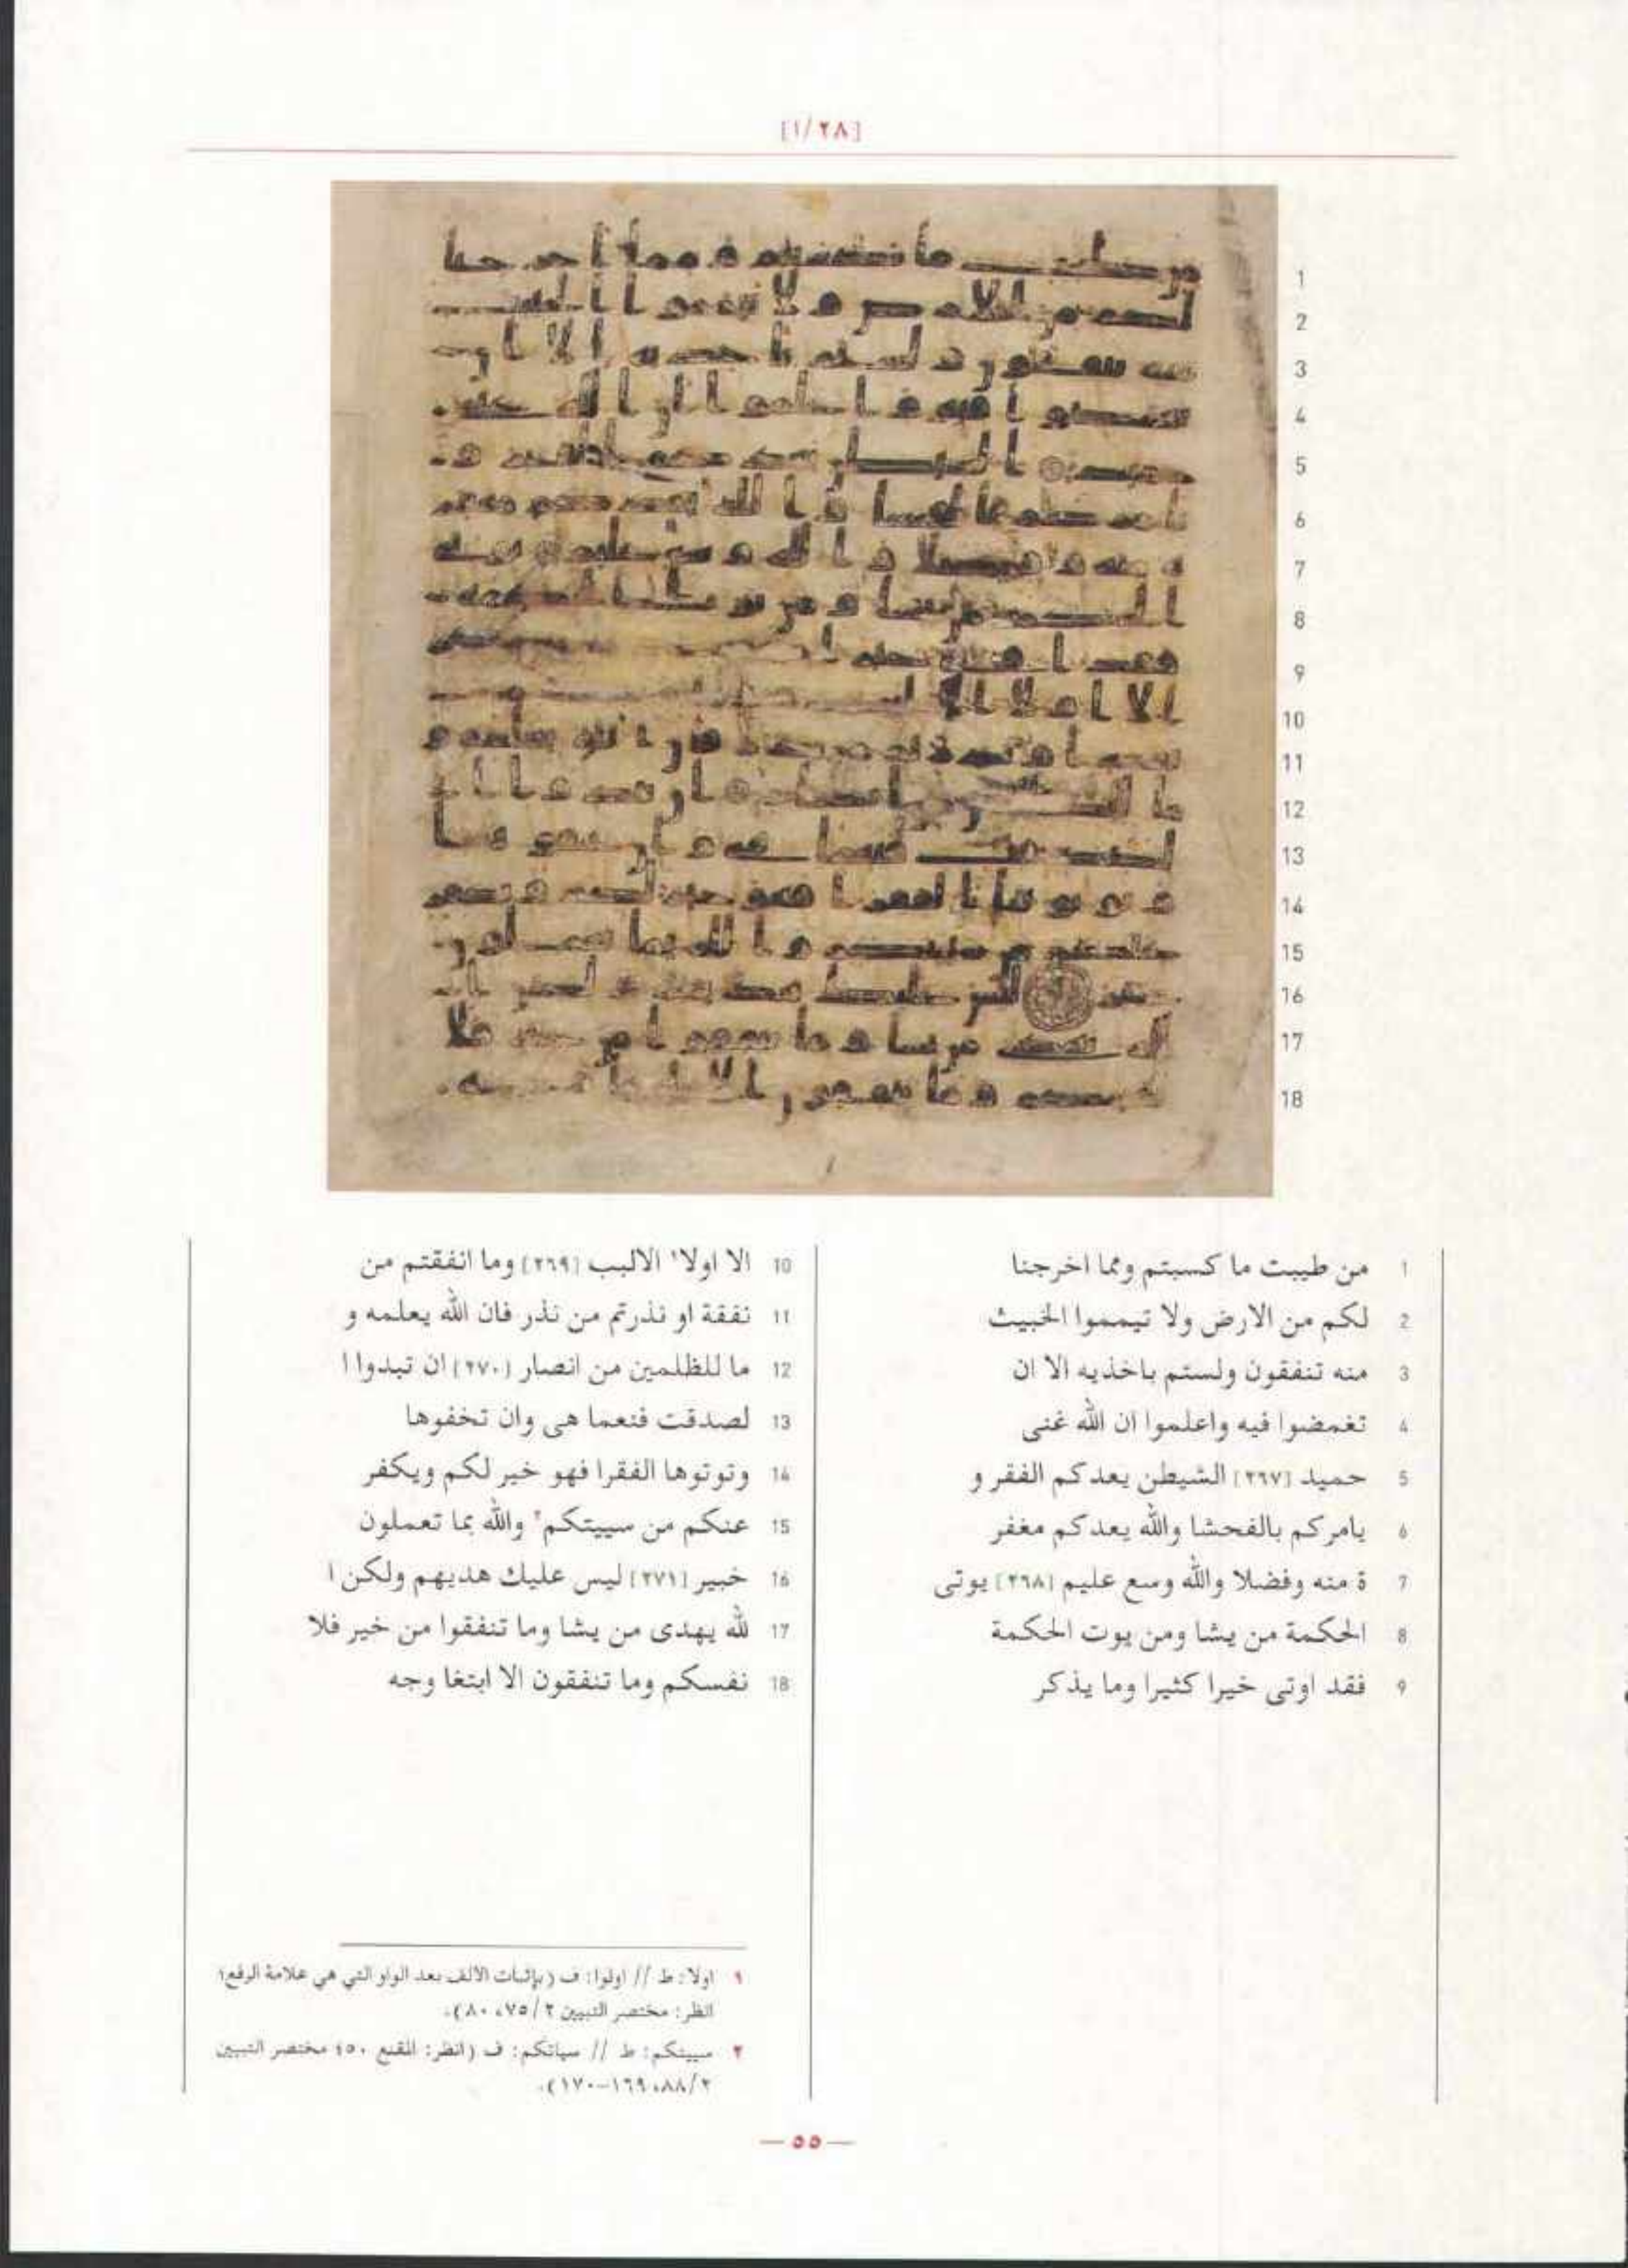 [٢٨/١]
1 من طيبت ما كسبتم ومما اخرجنا
2 لكم من الارض ولا تيمموا الخبيث
3 منه تنفقون ولستم باخذيه الا ان
4 تغمضوا فيه واعلموا ان الله غنى
5 حميد [٢٦٧] الشيطن يعدكم الفقر و
6 يامركم بالفحشا والله يعدكم مغفر
7 ة منه وفضلا والله وسع عليم [٢٦٨] يوتى
8 الحكمة من يشا ومن يوت الحكمة
9 فقد اوتى خيرا كثيرا وما يذكر
10 الا اولا١ الالبب [٢٦٩] وما انفقتم من
11 نفقة او نذرتم من نذر فان الله يعلمه و
12 ما للظلمين من انصار [٢٧٠] ان تبدوا ا
13 لصدقت فنعما هى وان تخفوها
14 وتوتوها الفقرا فهو خير لكم ويكفر
15 عنكم من سييتكم٢ والله بما تعملون
16 خبير [٢٧١] ليس عليك هديهم ولكن ا
17 لله يهدى من يشا وما تنفقوا من خير فلا
18 نفسكم وما تنفقون الا ابتغا وجه
١ اولا: ط // اولوا: ف (بإثبات الألف بعد الواو التي هي علامة الرفع؛
انظر: مختصر التبيين ٢/ ٧٥، ٨٠).
٢ سييتكم: ط // سياتكم: ف (انظر: المقنع ٥٠؛ مختصر التبيين
٢/ ٨٨، ١٦٩-١٧٠).
— ٥٥ —